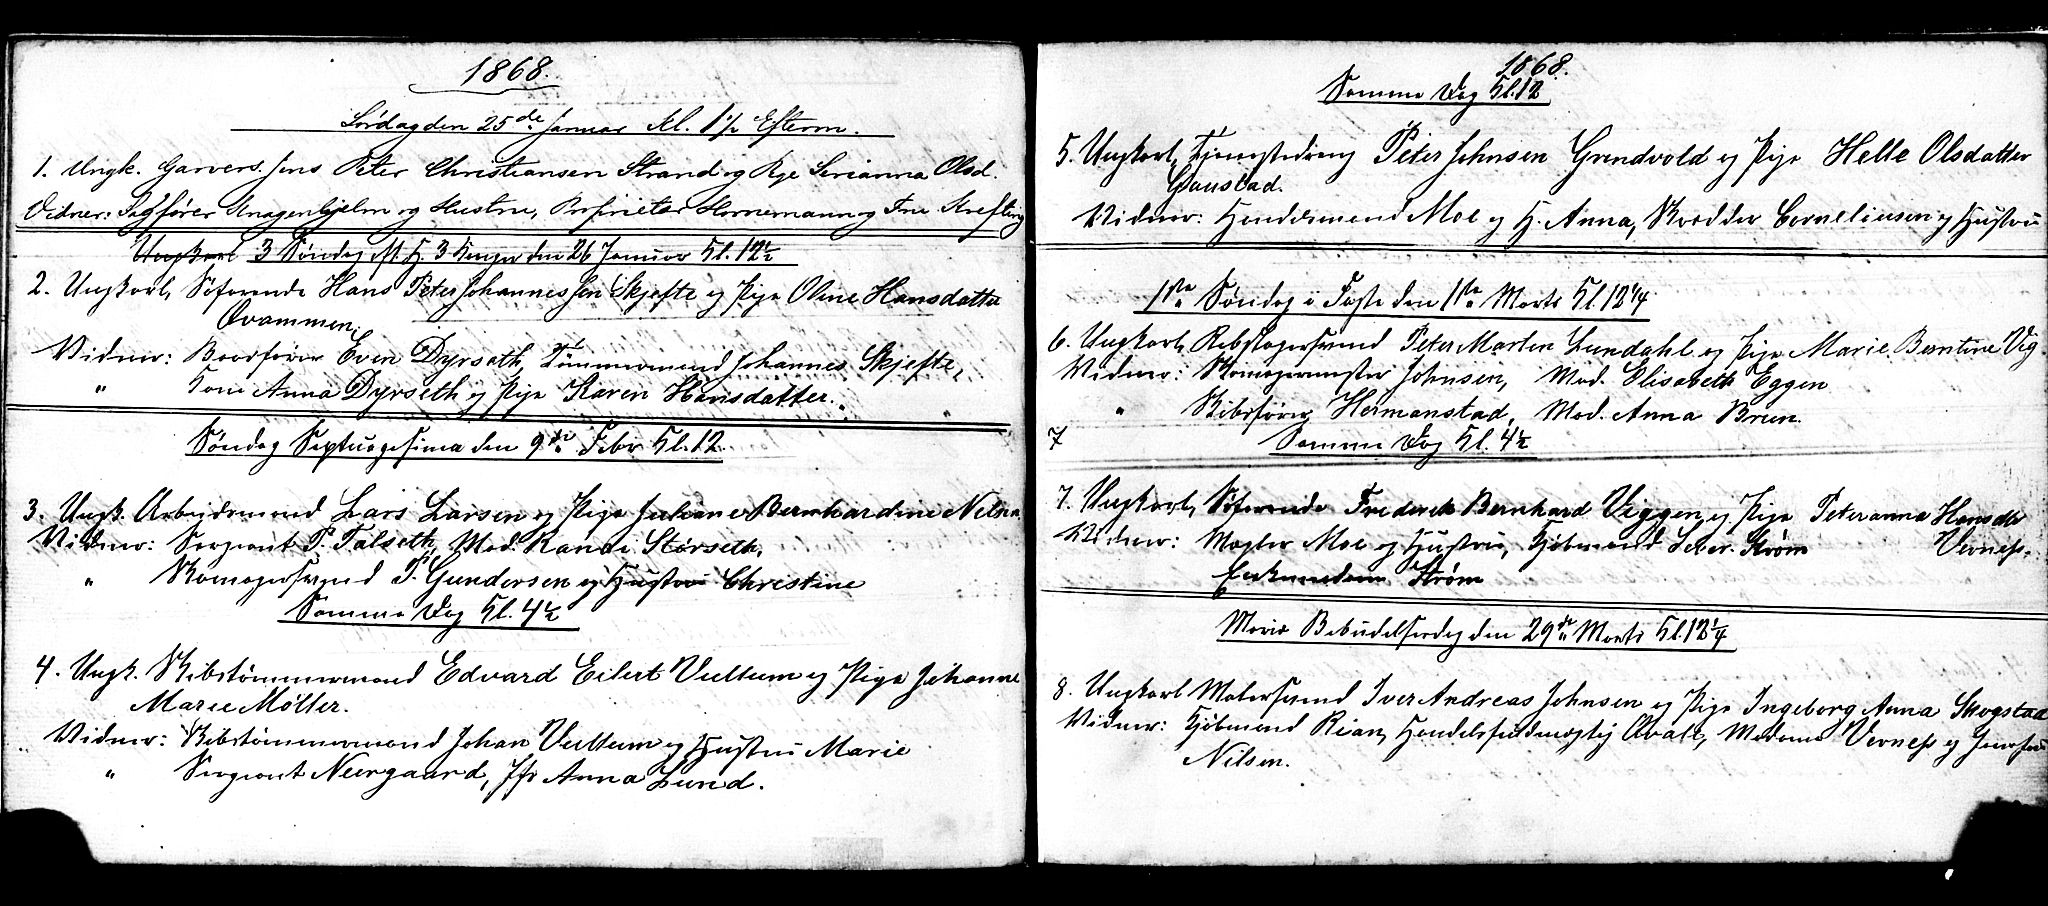 1868.
Lørdag den 25de Januar Kl. 1½ Efterm.
1. Ungk. Garvers. Jens Peter Christiansen Strand og Pge Serianna Olsd.
Vidner: Sagfører Knagenhjelm og Hustru, Proprietær Hornemann og Frue Krefting
Ungkarl 3 Søndag Kl. 12½ den 26 Januar
2. Ungkarl, Søfarende Hans Peter Johannessen Skjefte og Pige Oline Hansdatter
Qvammen.
Vidner: Baadfører Even Dyrseth, Tømmermand Johannes Skjefte,
" Kone Anna Dyrseth og Pige Karen Hansdatter.
Søndag Septuagesima den 9de Febr Kl. 12.
3. Ungk. Arbeidsmand Lars Larsen og Pige Juliane Bernhardine
Vidner: Sergeant P. Talseth, Mad. Randi Størseth,
" Skomagersvend P. Gundersen og Hustru Christine
Samme Dag Kl. 4½
4. Ungk. Skibstømmermand Edvard Eilert Vullum og Pige Johanne
Marie Møller.
Vidner: Skibstømmermand Johan Vullum og Hustru Marie
" Sergeant Neergaard, Jfr Anna Lund.
1868.
Samme Dag Kl. 12
5. Ungkarl, Tjenestedreng Peter Johnsen Grendvold og Pige Helle Olsdatter
Gaustad.
Vidner: Handelsmand Moe og H. Anna, Skrædder Corneliusen og Hustru
1ste Søndag i Faste den 1ste Marts Kl. 12¼
6. Ungkarl, Rebslagersvend Peter Martin Lundahl og Pige Marie Berntine Vig.
Vidner: Skomagermester Johnsen, Mad. Elisabeth Eggen
" Skibsfører Hermanstad, Mad. Anna Brun.
7 Samme Dag Kl. 4½
7. Ungkarl, Søfarende Frederik Bernhard Viggen og Pige Peteranna Hansdtr
Vidner: Mægler Moe og Hustru, Kjøbmand Strøm Verness.
Enkemadam Strøm
Mariæ Bebudelsesdag den 29de Marts Kl. 12¼
8. Ungkarl Malersvend Iver Andreas Johnsen og Pige Ingeborg Anna Skogstad
Vidner: Kjøbmand Rian, Handelsfuldmægtig Qvale, Madame Verness og Jomfru
Nilsen.